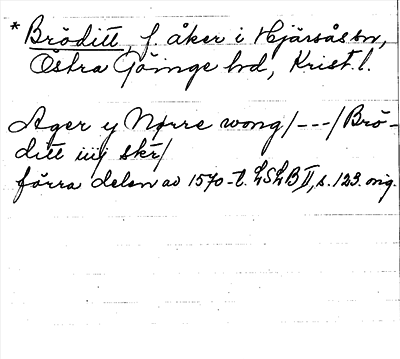 * Bröditt, f. åker i Hjärsås sn,
Östra Göinge hd, Krist. l.
Ager y Nørre wong /---/ Brö-
ditt iiij skr/
förra delen av 1570-t. LSLB II, s. 123. orig.